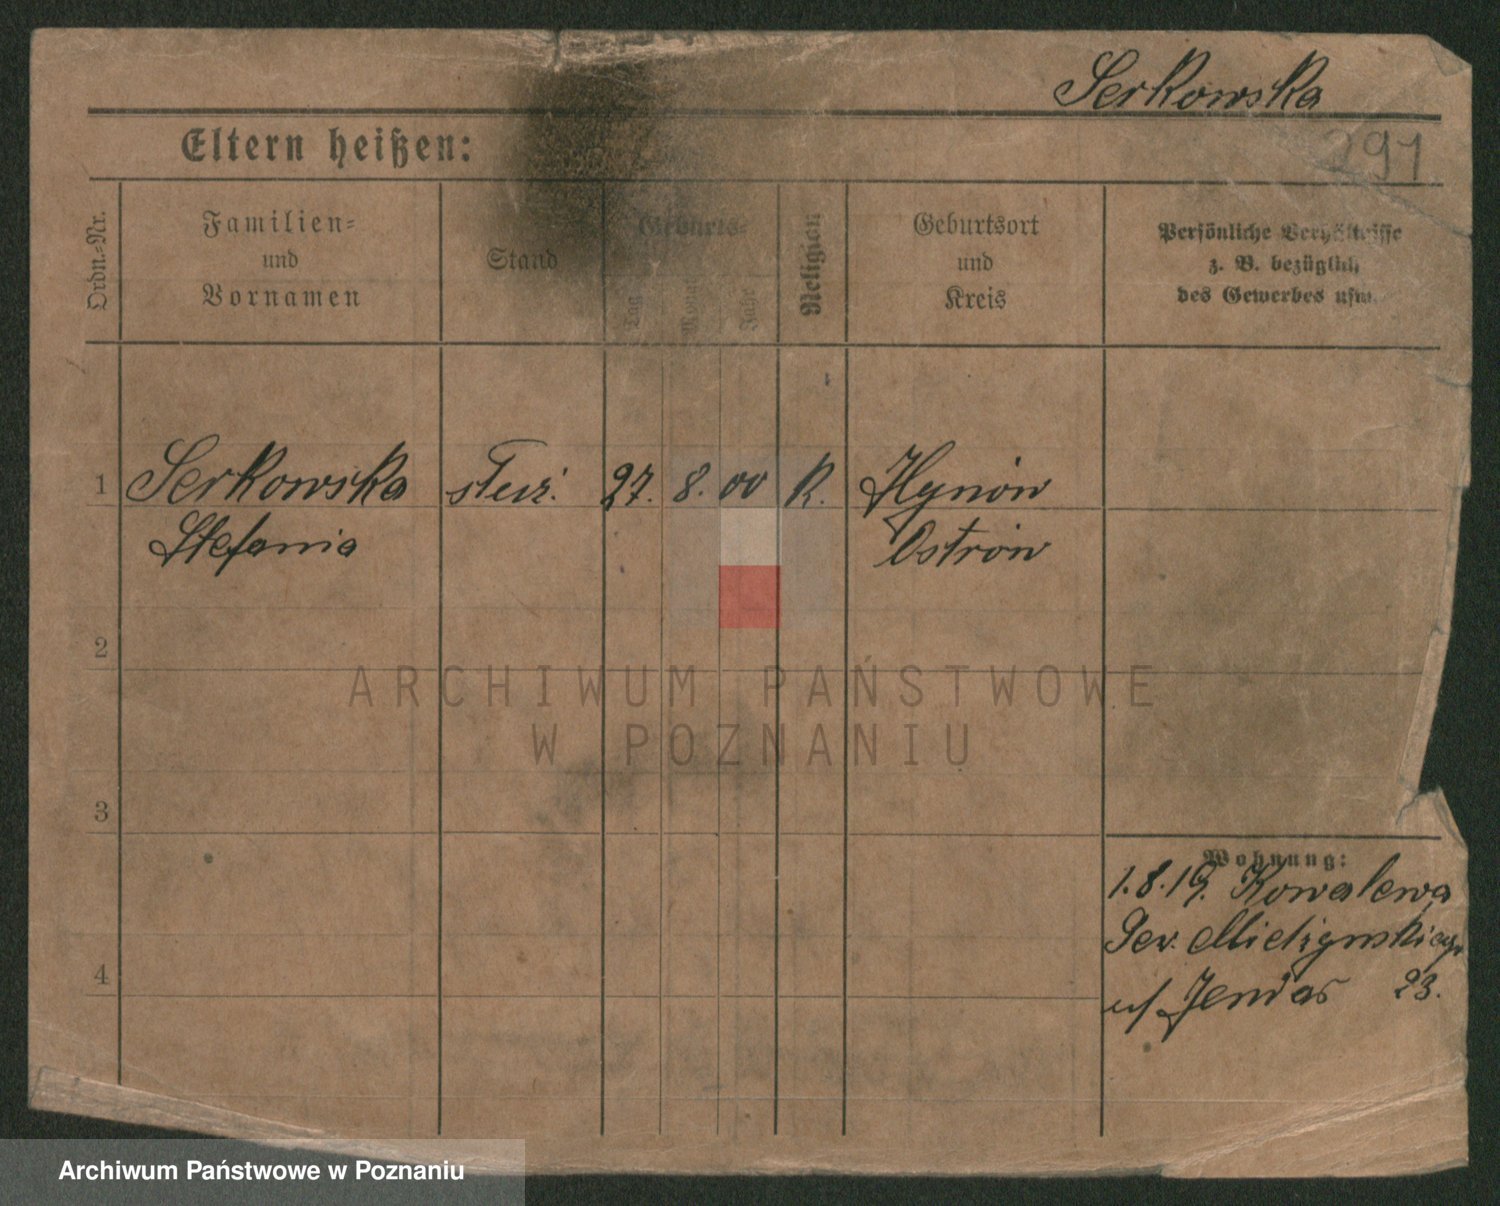 Serkowska
Eltern heißen:
291
Ordn.=Nr.
Familien=
und
Vornamen
Stand
Geburts=
Tag
Monat
Jahr
Religion
Geburtsort
und
Kreis
Persönliche Verhältnisse
z. B. bezüglich
des Gewerbes usw.
1 Serkowska 27. 8. 00 R.
Stefania Ostrów
2
3
4
Wohnung:
1.8.19. Kowalewa
23.
ARCHIWUM PAŃSTWOWE
W POZNANIU
Archiwum Państwowe w Poznaniu